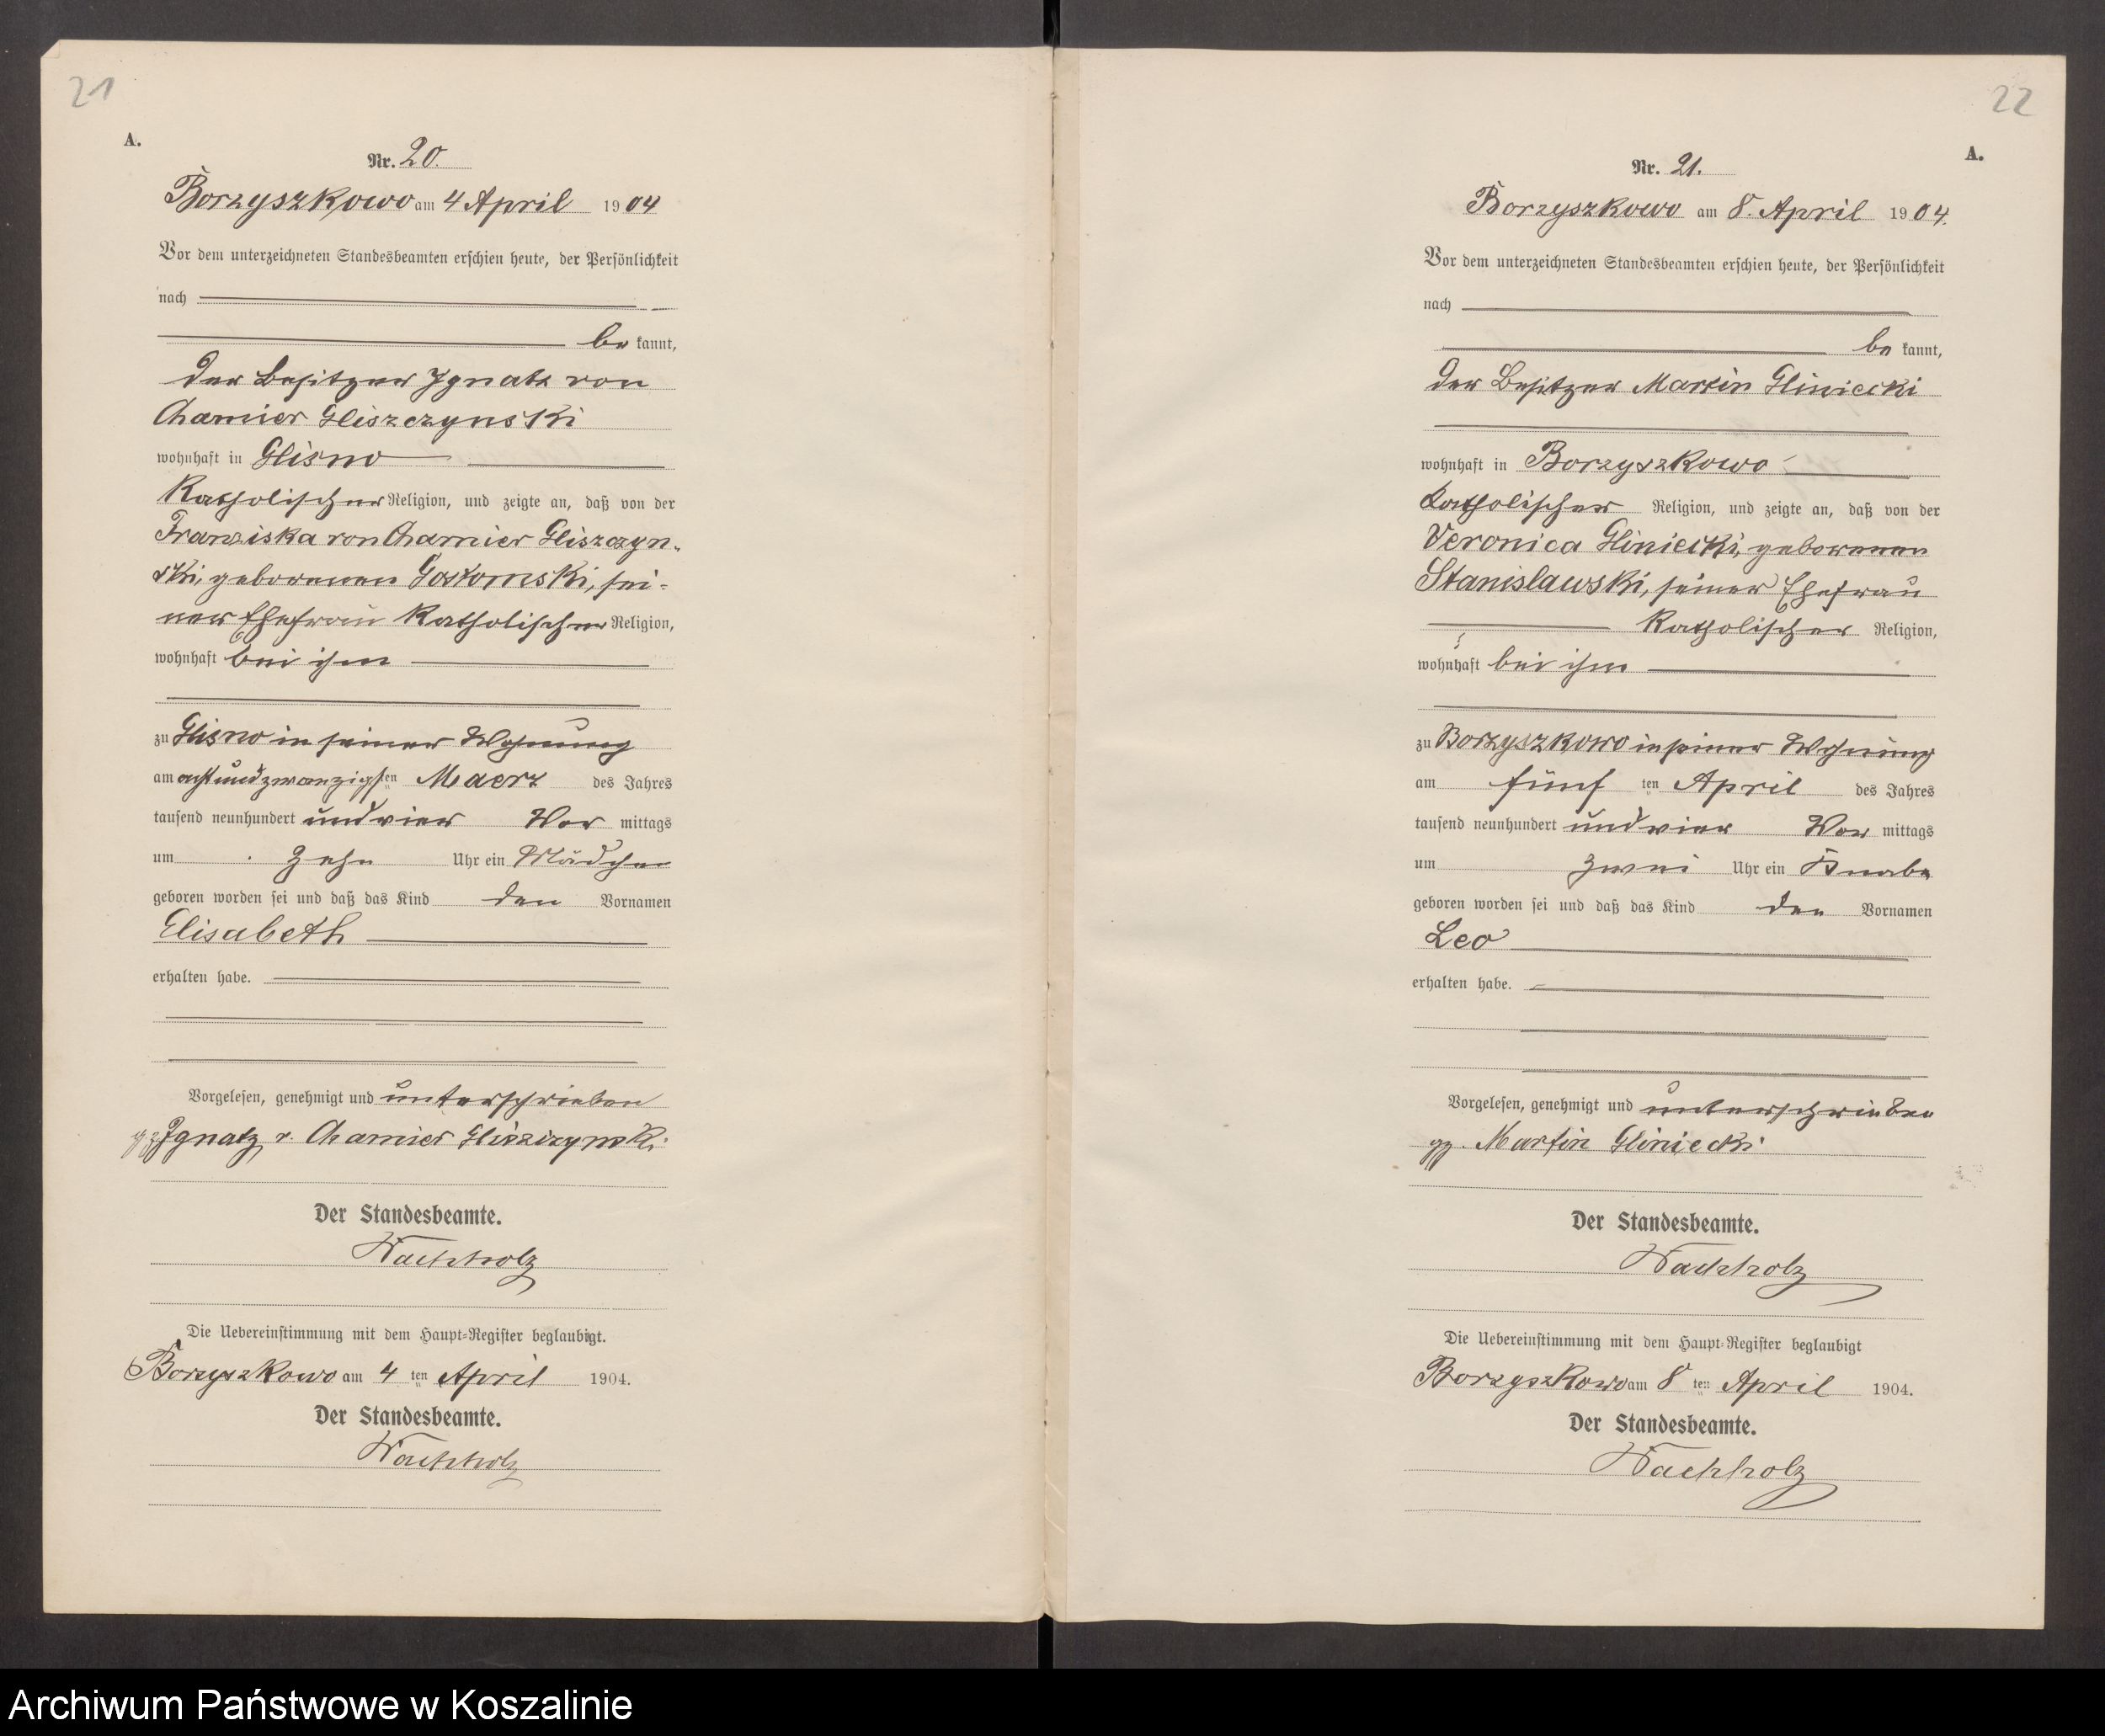 21
A.
Nr. 20.
Borzyszkowo am 4 April 1904
Vor dem unterzeichneten Standesbeamten erschien heute, der Persönlichkeit
nach
be kannt,
der Besitzer Ignatz von
Chamier Gliszczynski
wohnhaft in Glisno
Katholischer Religion, und zeigte an, daß von der
Franziska von Chamier Gliszczyn-
ski, geborenen Gostomski, sei-
ner Ehefrau Katholischer Religion,
wohnhaft bei ihm
zu Glisno in seiner Wohnung
am achtundzwanzigsten Maerz des Jahres
tausend neunhundert und vier Vor mittags
um zehn Uhr ein Mädchen
geboren worden sei und daß das Kind den Vornamen
Elisabeth
erhalten habe.
Vorgelesen, genehmigt und unterschrieben
gz Ignatz v. Chamier Gliszczynski
Der Standesbeamte.
Wachholz
Die Uebereinstimmung mit dem Haupt-Register beglaubigt.
Borzyszkowo am 4 ten April 1904.
Der Standesbeamte.
Wachholz
22
A.
Nr. 21.
Borzyszkowo am 8. April 1904.
Vor dem unterzeichneten Standesbeamten erschien heute, der Persönlichkeit
nach
be kannt,
der Besitzer Martin Gliniecki
wohnhaft in Borzyszkowo
Katholischer Religion, und zeigte an, daß von der
Veronica Gliniecki, geborenen
Stanislawski, seiner Ehefrau
Katholischer Religion,
wohnhaft bei ihm
zu Borzyszkowo in seiner Wohnung
am fünf ten April des Jahres
tausend neunhundert und vier Vor mittags
um zwei Uhr ein Knabe
geboren worden sei und daß das Kind den Vornamen
Leo
erhalten habe.
Vorgelesen, genehmigt und unterschrieben
gz. Martin Gliniecki
Der Standesbeamte.
Wachholz
Die Uebereinstimmung mit dem Haupt-Register beglaubigt
Borzyszkowo am 8 ten April 1904.
Der Standesbeamte.
Wachholz
Archiwum Państwowe w Koszalinie